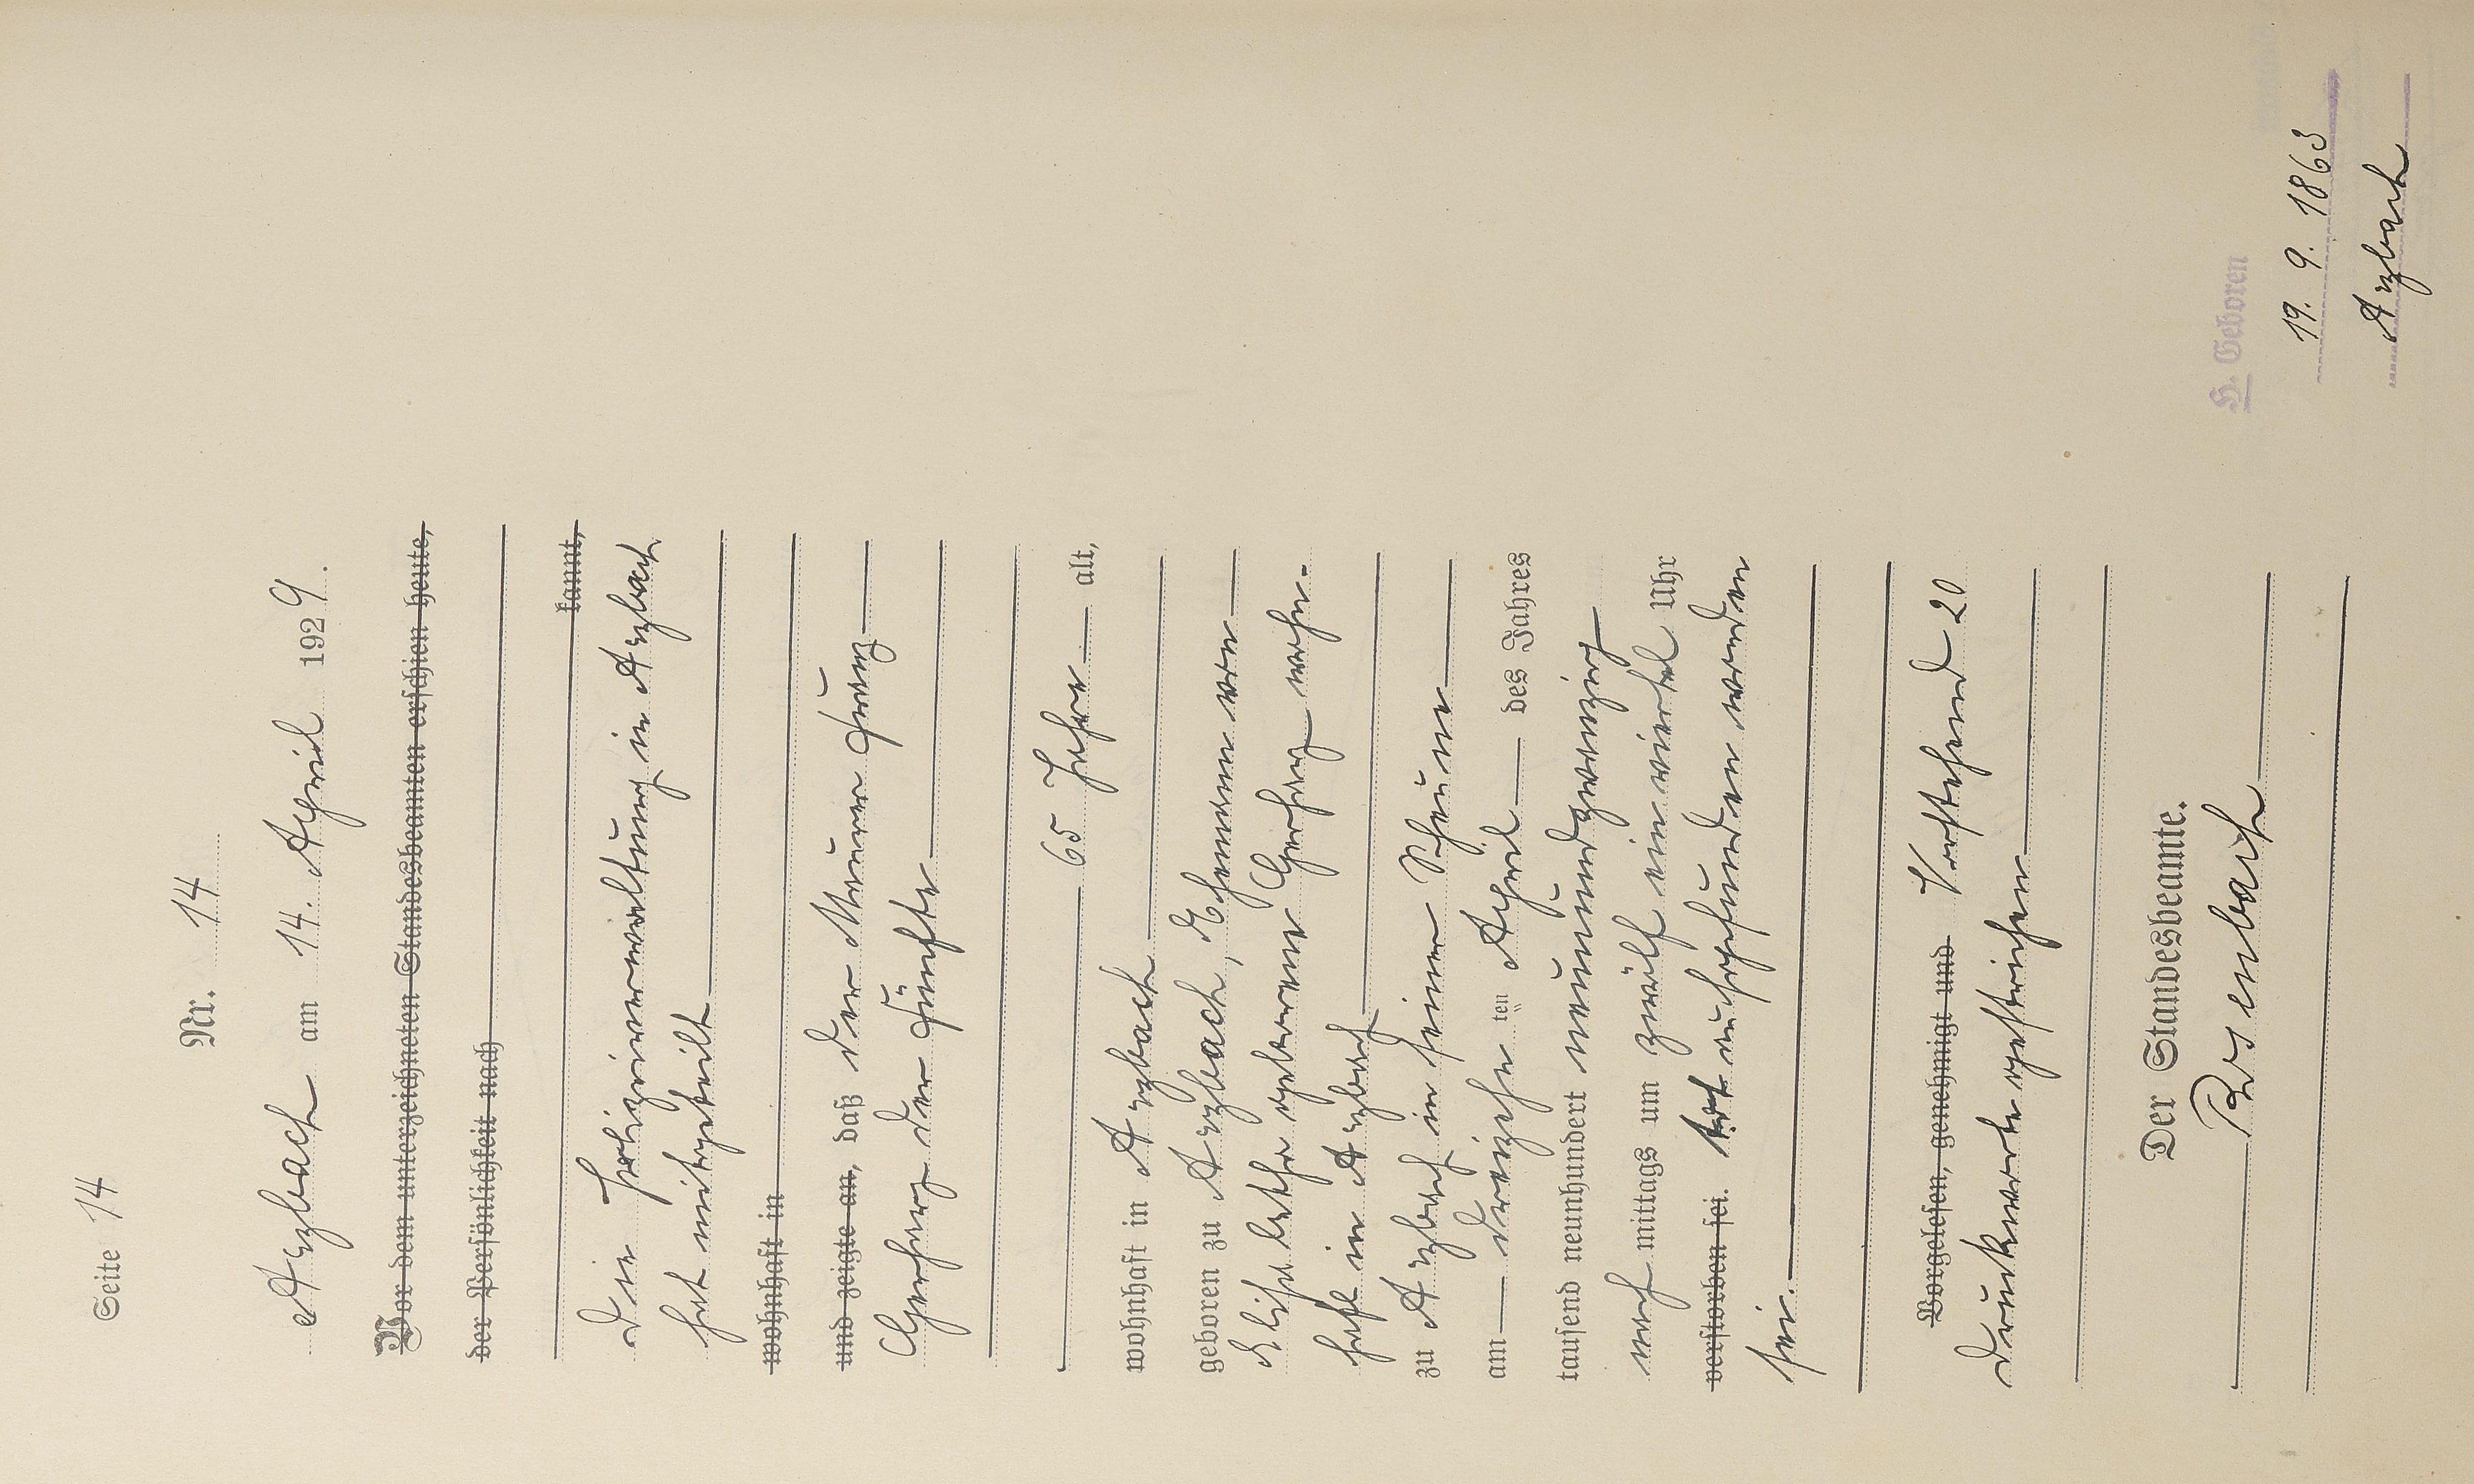 Seite 14
Nr. 14
Arzbach am 14. April 1929.
Vor dem unterzeichneten Standesbeamten erschien heute,
der Persönlichkeit nach
kannt,
Die Polizeiverwaltung in Arzbach
hat mitgeteilt
wohnhaft in
und zeigte an, daß der Maurer Franz
Gerharz der Fünfte
65 Jahre alt,
wohnhaft in Arzbach
geboren zu Arzbach, Ehemann von
Elisabetha geborene Gerharz wohn-
haft in Arzbach
zu Arzbach in seiner Scheune
am dreizehn ten April des Jahres
tausend neunhundert neunundzwanzig
nach mittags um zwölf ein viertel Uhr
verstorben sei. tot aufgefunden worden
sei.
Vorgelesen, genehmigt und Vorstehend 20
Druckworte gestrichen
Der Standesbeamte.
H. Geboren
19. 9. 1863
Arzbach